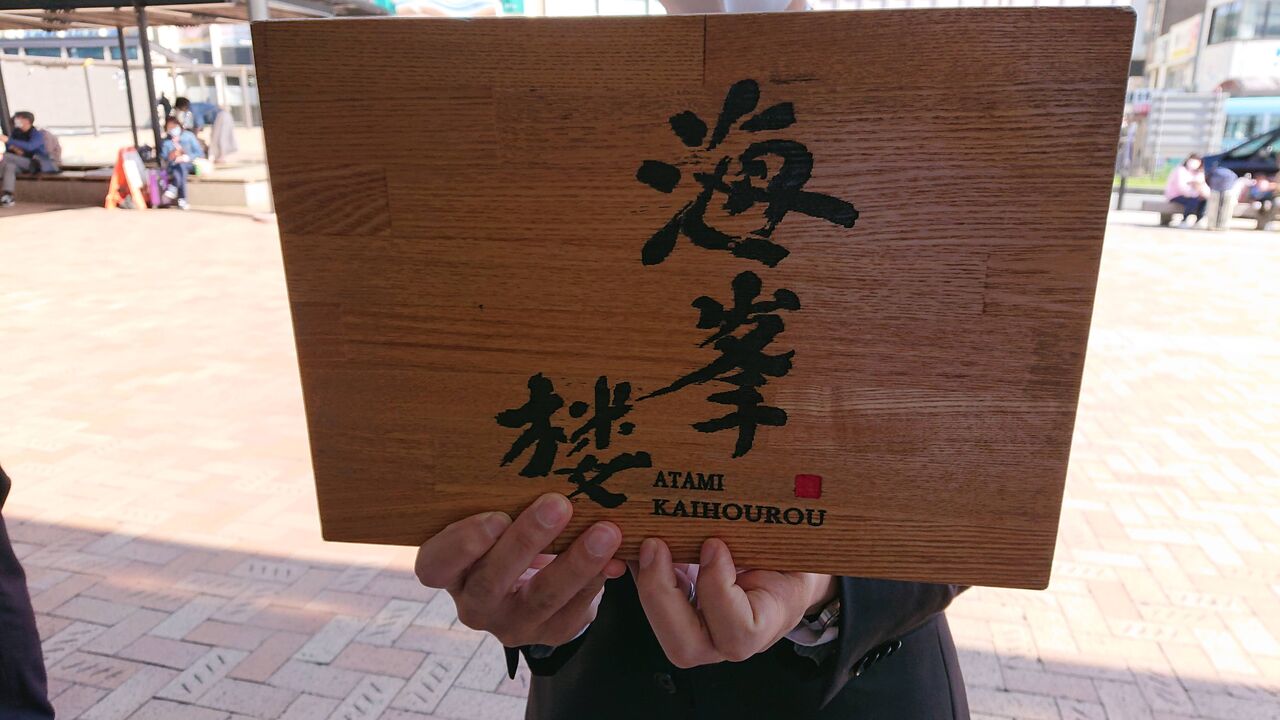 海峯楼
ATAMI
KAIHOUROU